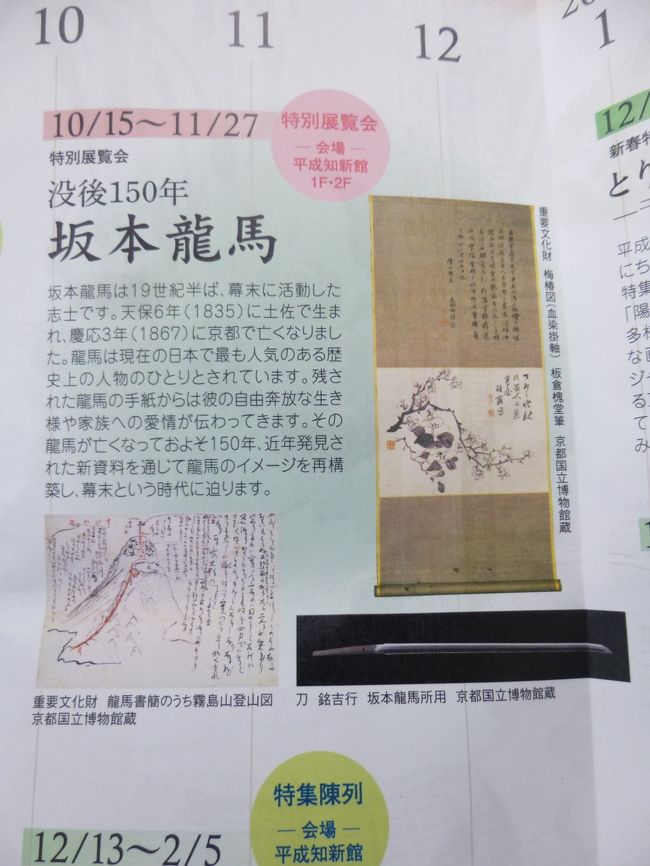 10
11
12
20
1
10/15～11/27
特別展覧会
― 会場 ―
平成知新館
1F・2F
特別展覧会
没後150年
坂本龍馬
坂本龍馬は19世紀半ば、幕末に活動した
志士です。天保6年（1835）に土佐で生ま
れ、慶応3年（1867）に京都で亡くなりまし
た。龍馬は現在の日本で最も人気のある歴
史上の人物のひとりとされています。残さ
れた龍馬の手紙からは彼の自由奔放な生き
様や家族への愛情が伝わってきます。その
龍馬が亡くなっておよそ150年、近年発見さ
れた新資料を通じて龍馬のイメージを再構
築し、幕末という時代に迫ります。
重要文化財 梅椿図（血染掛軸） 板倉槐堂筆 京都国立博物館蔵
重要文化財 龍馬書簡のうち霧島山登山図
京都国立博物館蔵
刀 銘吉行 坂本龍馬所用 京都国立博物館蔵
特集陳列
― 会場 ―
平成知新館
12/13～2/5
12/
新春特
とり
平成
にち
特集
「陽
多様
な画
ジャ
るア
て
み